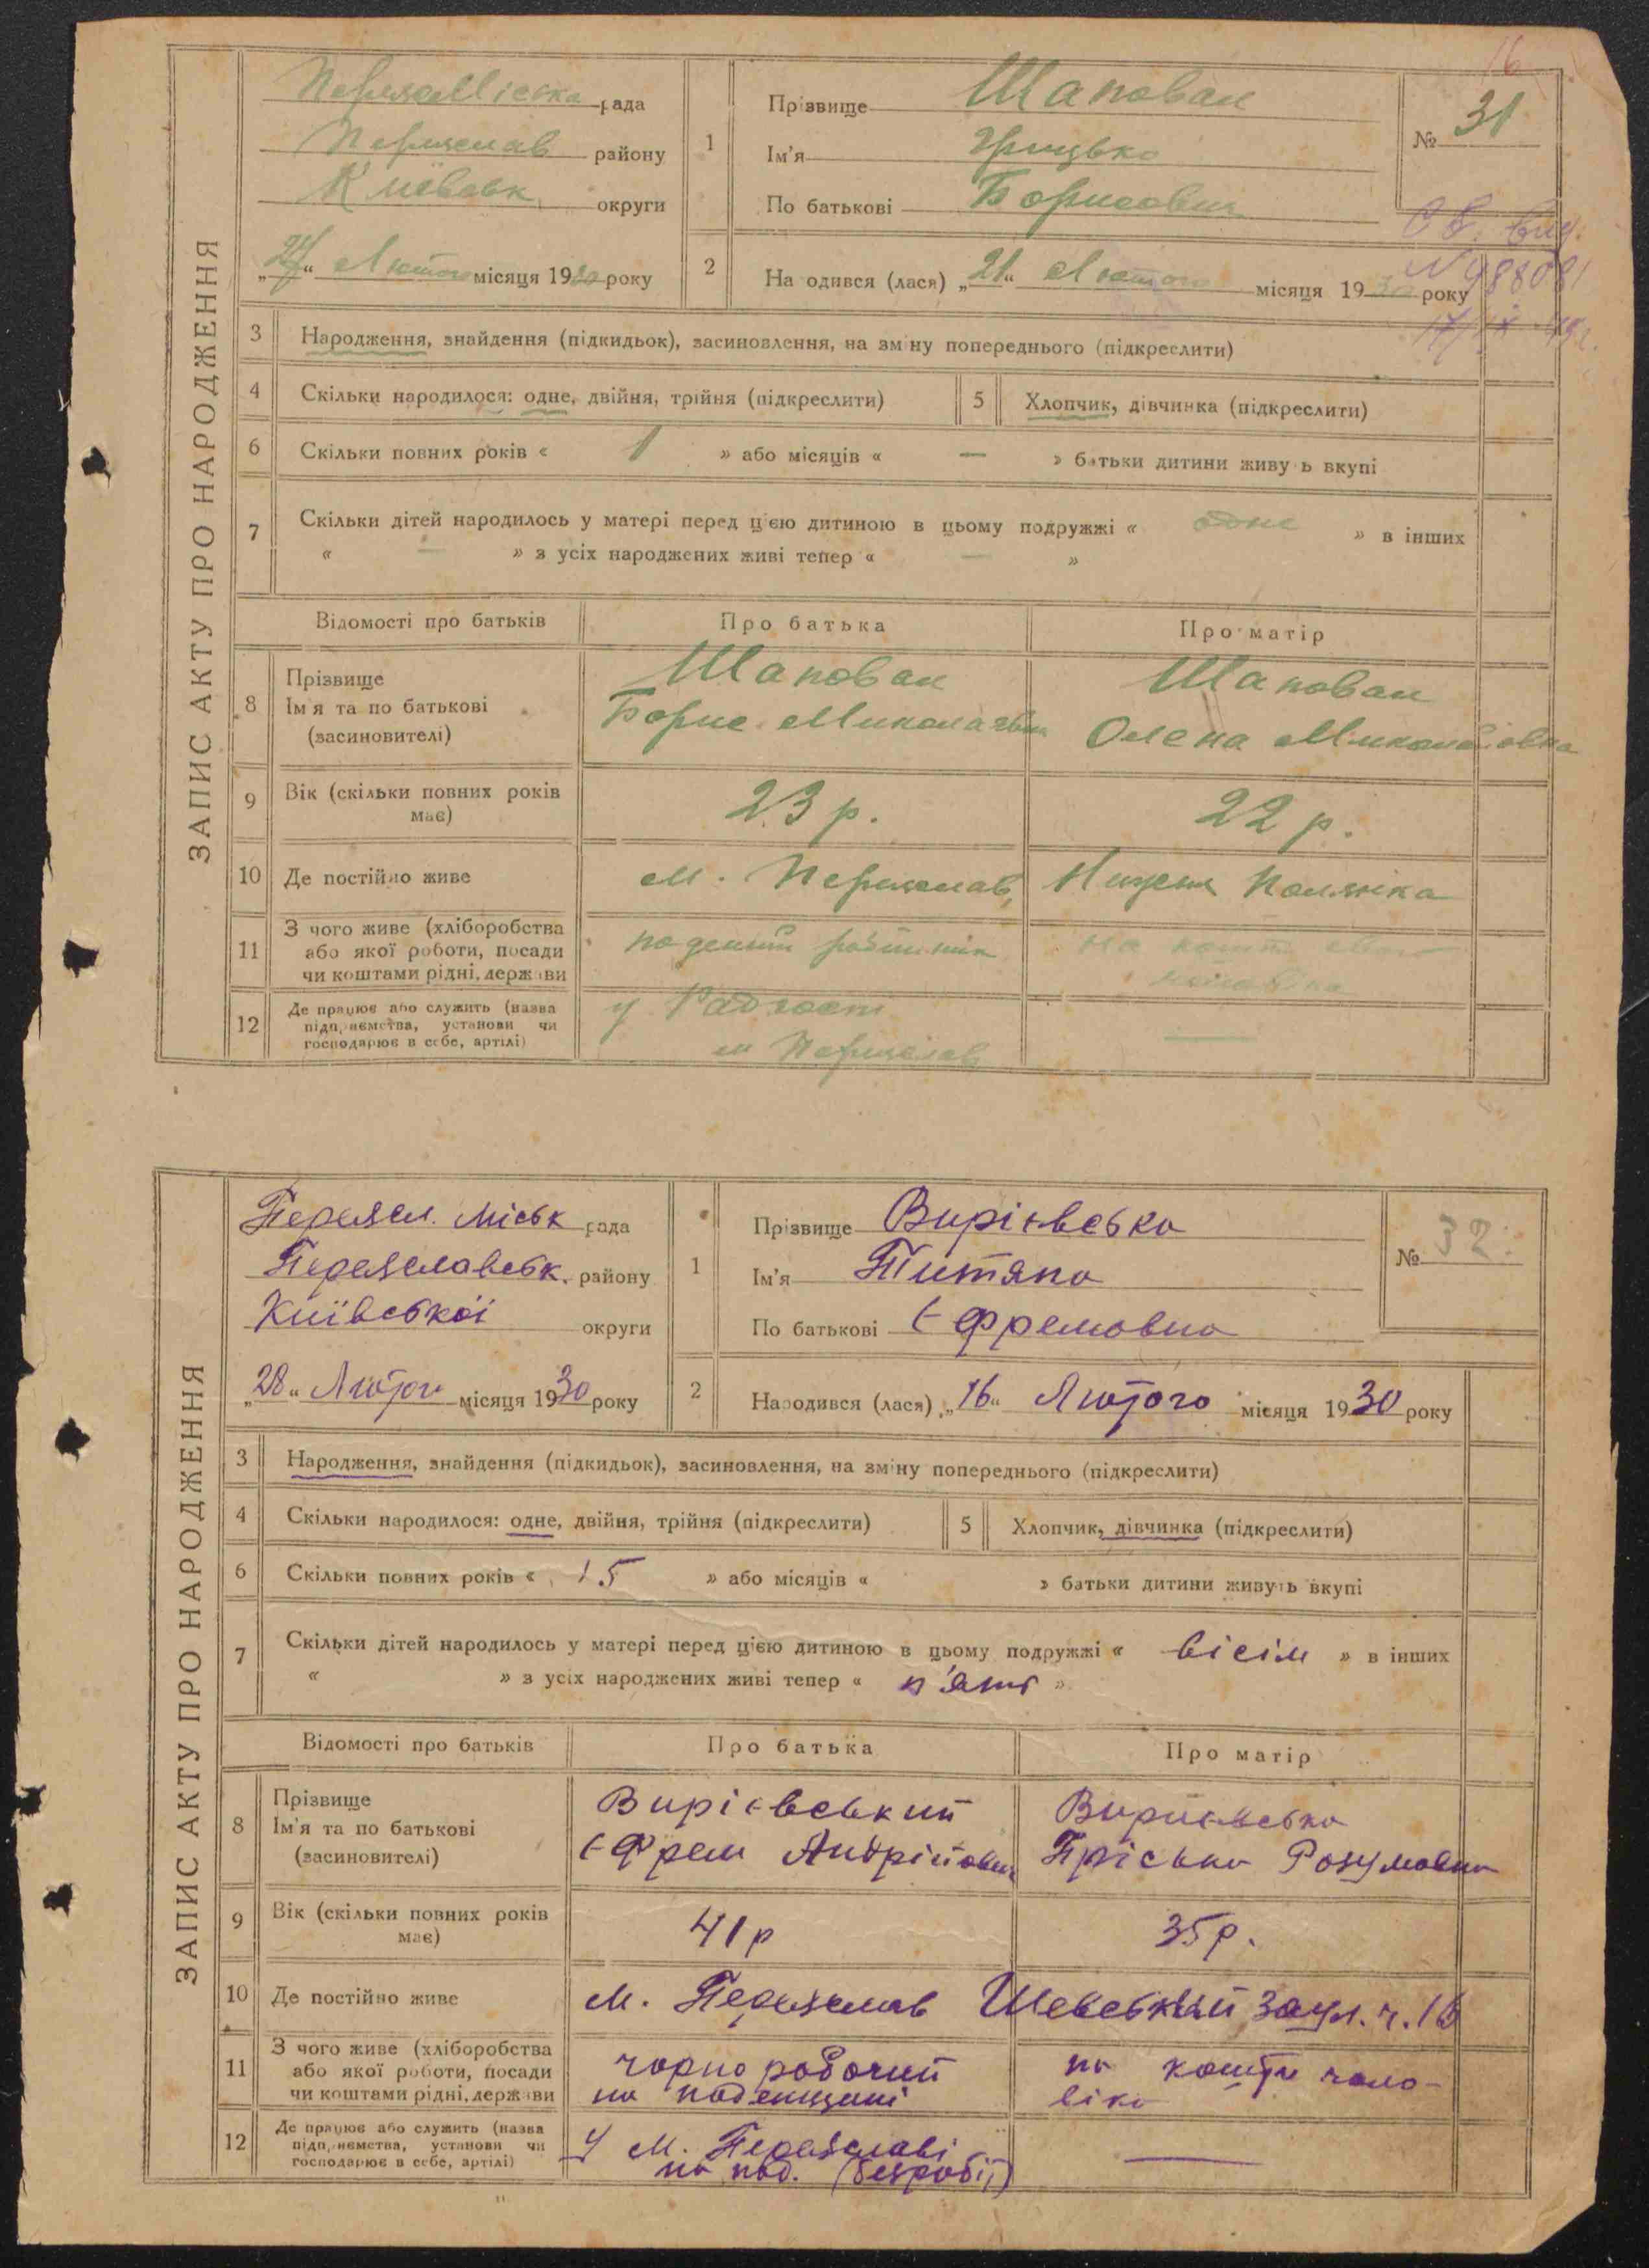 16
ЗАПИС АКТУ ПРО НАРОДЖЕННЯ
рада
Переяслав району
Київськ. округи
"27" Лютого місяця 1930 року
1
Прізвище Шаповал
Ім'я Грицько
По батькові Борисович
№ 31
Св. вид.
N 988081
2
На одився (лася) "21" Лютого місяця 1930 року
3 Народження, знайдення (підкидьок), засиновлення, на зміну попереднього (підкреслити)
4 Скільки народилося: одне, двійня, трійня (підкреслити) 5 Хлопчик, дівчинка (підкреслити)
6 Скільки повних років « 1 » або місяців « — » батьки дитини живуть вкупі
7 Скільки дітей народилось у матері перед цією дитиною в цьому подружжі « одне » в інших
« — » з усіх народжених живі тепер « — »
Відомості про батьків Про батька Про матір
8 Прізвище Ім'я та по батькові (засиновителі)
Шаповал Борис Миколаєвич
Шаповал Олена Миколаївна
9 Вік (скільки повних років має) 23 р. 22 р.
10 Де постійно живе м. Переяслав,
11 З чого живе (хліборобства або якої роботи, посади чи коштами рідні, держави
поденний робітник
на кошти свого чоловіка
12 Де працює або служить (назва підприємства, установи чи господарює в себе, артілі)
у Радгоспі
м Переяслав
—
ЗАПИС АКТУ ПРО НАРОДЖЕННЯ
Переясл. Міськ рада
Переяславськ. району
Київської округи
"28" Лютого місяця 1930 року
1
Прізвище Вирієвська
Ім'я Титяна
По батькові Єфремовна
№ 32.
2
Народився (лася) "16" Лютого місяця 1930 року
3 Народження, знайдення (підкидьок), засиновлення, на зміну попереднього (підкреслити)
4 Скільки народилося: одне, двійня, трійня (підкреслити) 5 Хлопчик, дівчинка (підкреслити)
6 Скільки повних років « 15 » або місяців « » батьки дитини живуть вкупі
7 Скільки дітей народилось у матері перед цією дитиною в цьому подружжі « вісім » в інших
« » з усіх народжених живі тепер « п'ять »
Відомості про батьків Про батька Про матір
8 Прізвище Ім'я та по батькові (засиновителі)
Вирієвський Єфрем Андрійович
Вириєвська Пріська Розумовна
9 Вік (скільки повних років має) 41 р 35 р.
10 Де постійно живе м. Переяслав заул. ч. 16
11 З чого живе (хліборобства або якої роботи, посади чи коштами рідні, держави
чорно робочий
на поденщині
на кошти чоло-
віка
12 Де працює або служить (назва підприємства, установи чи господарює в себе, артілі)
У м. Переяславі
на под. (безробіт)
—